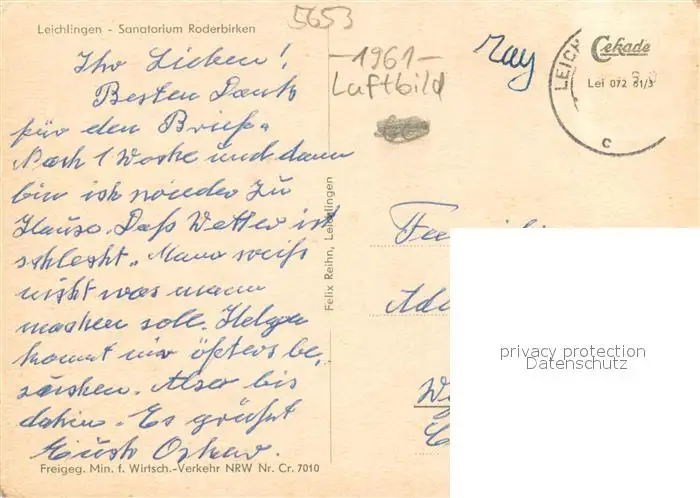 5653
Leichlingen - Sanatorium Roderbirken
Ihr Lieben!
Besten Dank
für den Brief.
Noch 1 Woche und dann
bin ich wieder zu
Hause. Daß Wetter ist
schlecht. Mann weiß
nicht was mann
machen soll. Helga
kommt mir öfters be-
suchen. Also bis
dahin. Es grüßt
Euch Oskar.
Freigeg. Min. f. Wirtsch.-Verkehr NRW Nr. Cr. 7010
Felix Reihn, Leichlingen
-1961-
Luftbild
LEICH
c
Cekade
Lei 072 61/3
privacy protection
Datenschutz